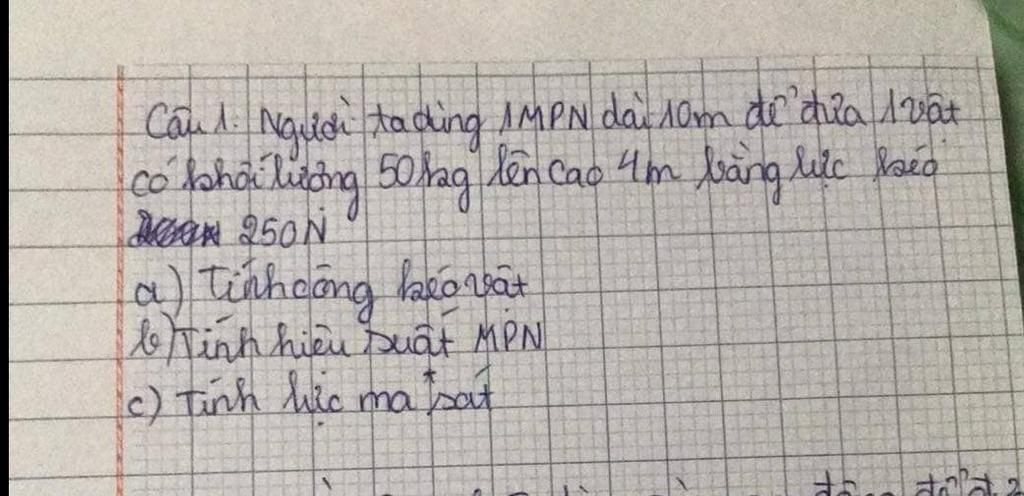 Câu 1. Người ta dùng 1 MPN dài 10m để đưa 1 vật
có khối lượng 50kg lên cao 4m bằng lực kéo
250N
a) Tính công kéo vật
b) Tính hiệu suất MPN
c) Tính lực ma sát